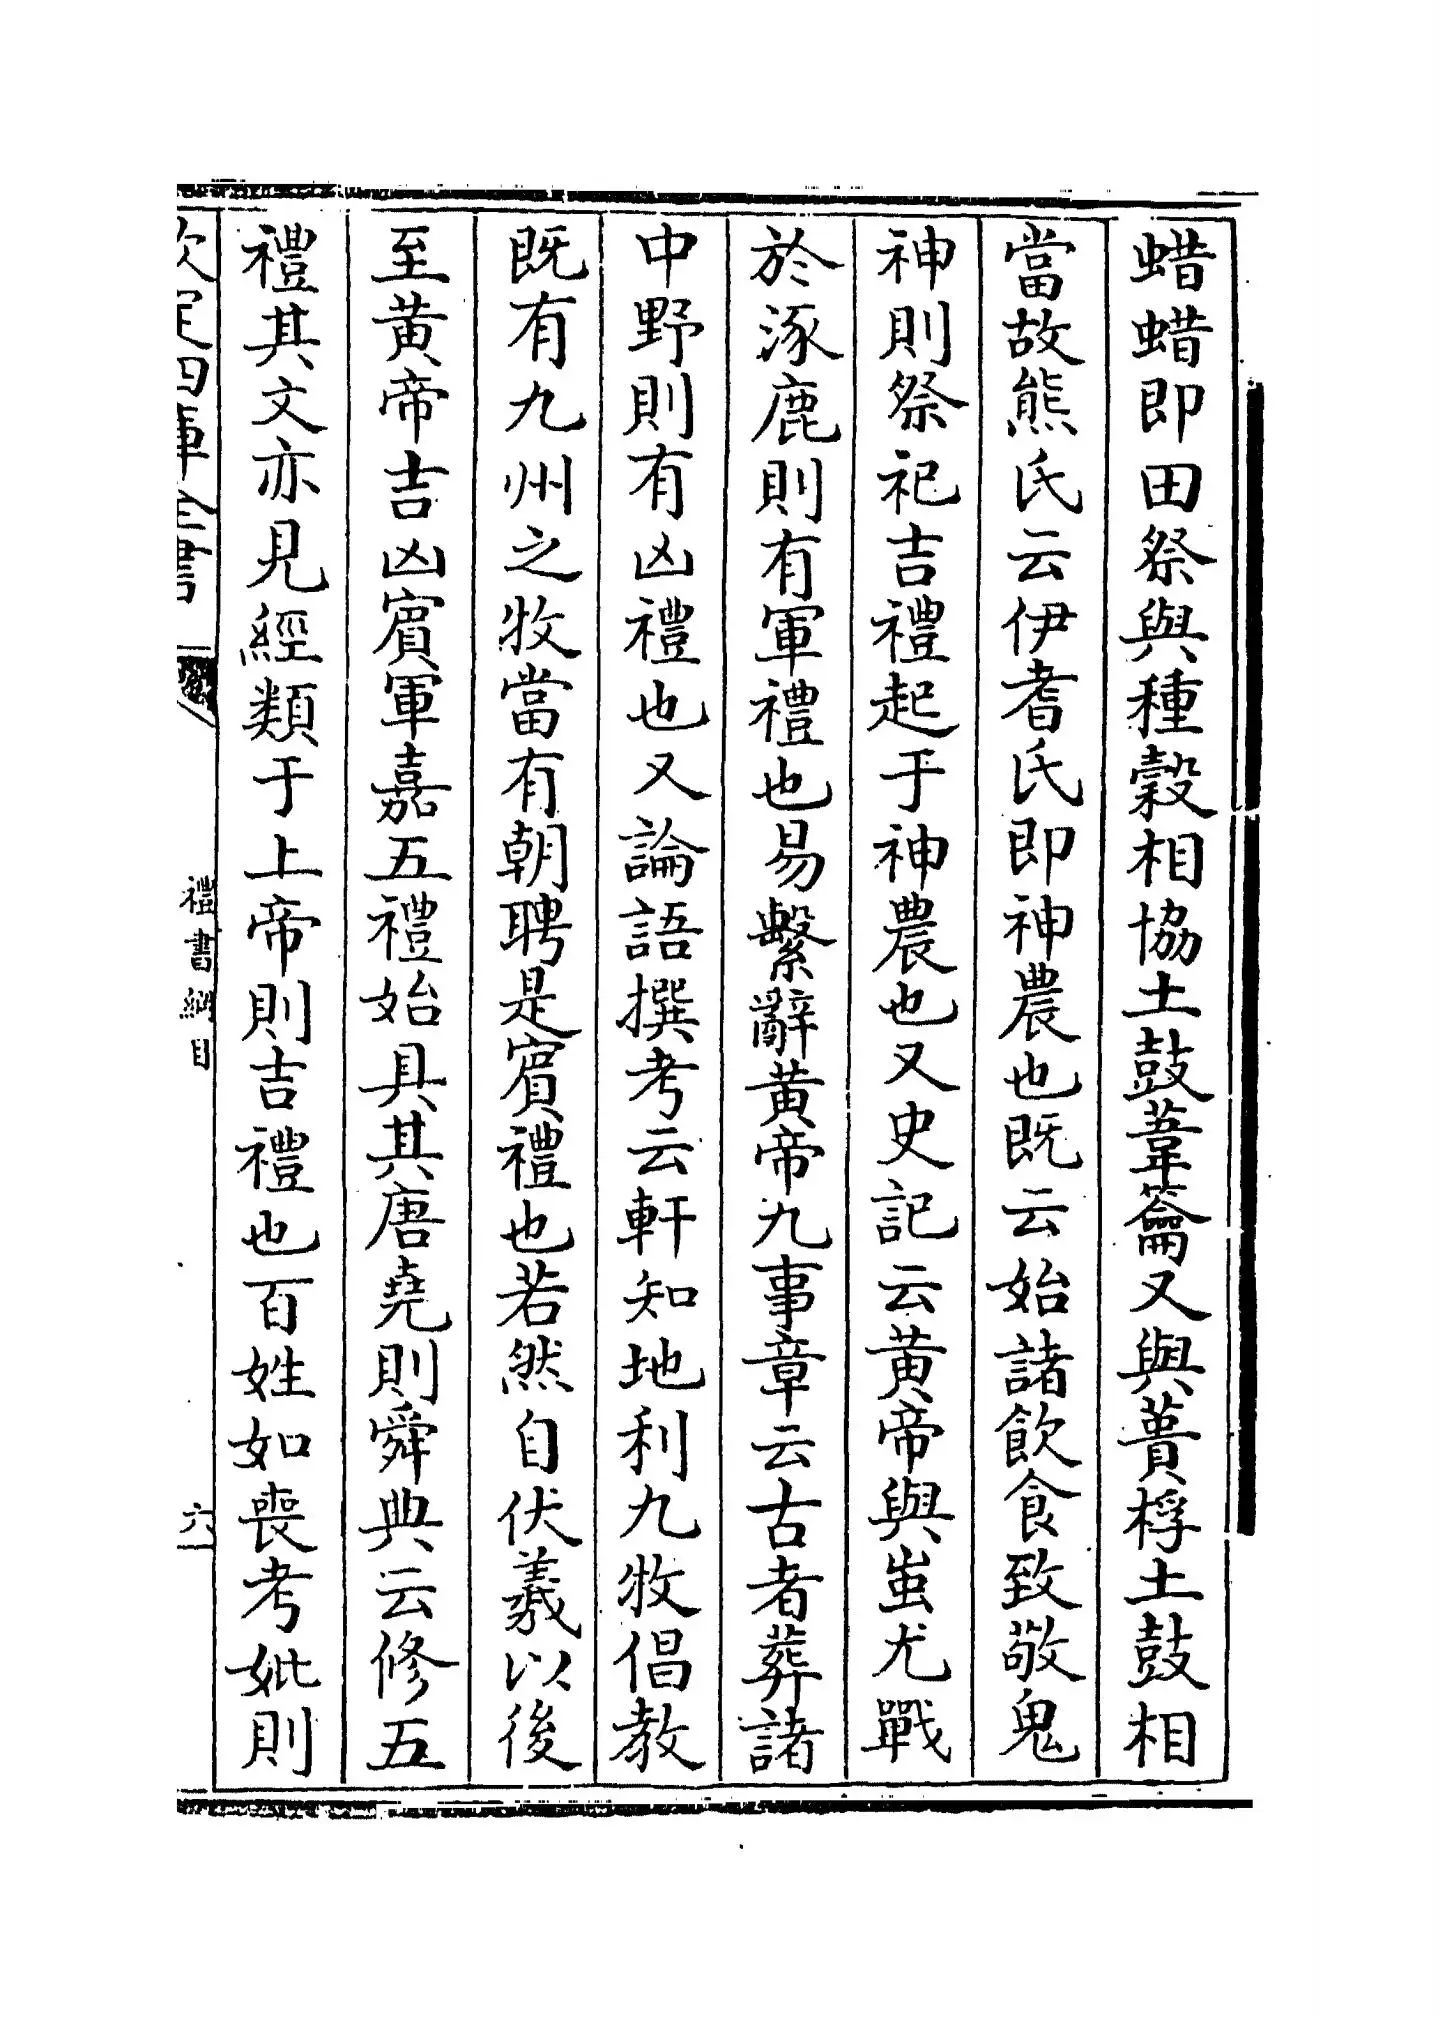 蜡蜡即田祭與種穀相協土鼓葦籥又與蕢桴土鼓相
當故熊氏云伊耆氏即神農也既云始諸飲食致敬鬼
神則祭祀吉禮起于神農也又史記云黄帝與蚩尤戰
於涿鹿則有軍禮也易繫辭黄帝九事章云古者葬諸
中野則有凶禮也又論語撰考云軒知地利九牧倡教
既有九州之牧當有朝聘是賓禮也若然自伏羲以後
至黄帝吉凶賓軍嘉五禮始具其唐堯則舜典云修五
禮其文亦見經類于上帝則吉禮也百姓如喪考妣則
欽定四庫全書
禮書綱目
六